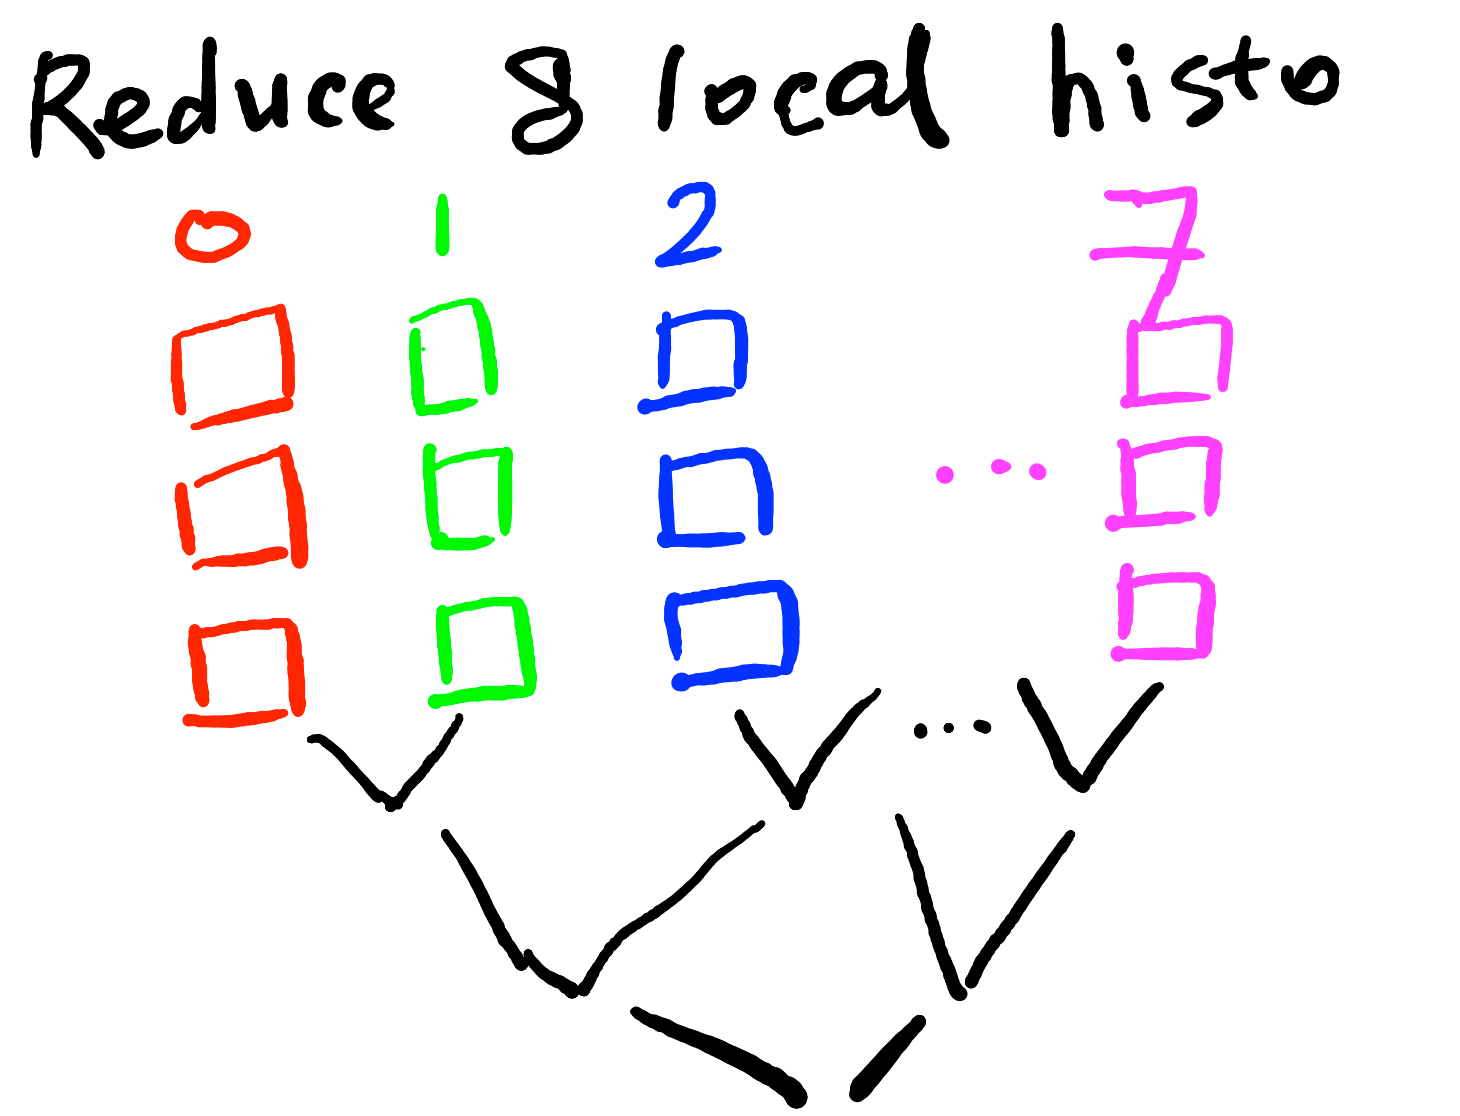 Reduce 8 local histo
0 1 2 ... 7
...